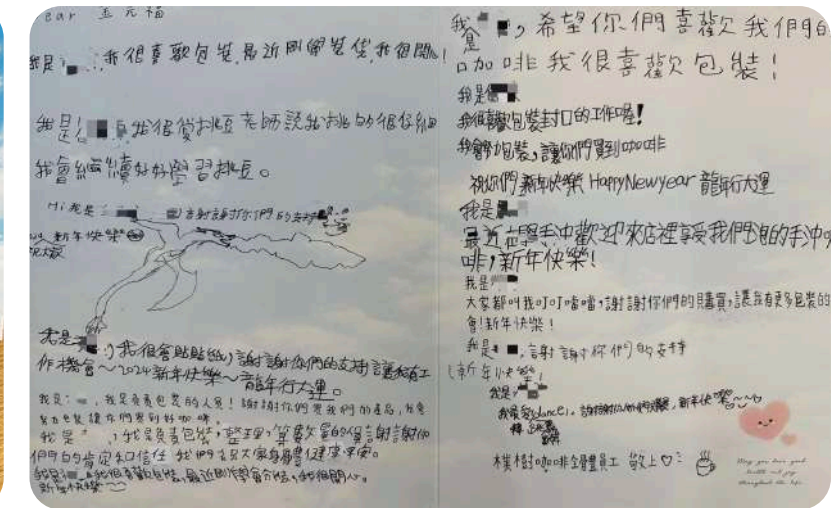 ear 金元福
我是 我很喜歡包裝,最近剛學裝袋,我很開心!
我是 我很愛挑豆,老師說我挑的很仔細
我會繼續好好學習挑豆。
Hi 我是 謝謝你們的支持
新年快樂
祝大家
我是 我很會貼貼紙,謝謝你們的支持讓我有工
作機會~2024新年快樂~龍年行大運。
我是 我是負責包裝的人員!謝謝你們買我們的產品,我會
努力包裝讓你們買到好咖啡
我是 我是負責包裝,整理,算數量的人員謝謝你
們的肯定和信任 我們 大家身體健康平安。
我是 我很喜歡包裝,最近剛學會分裝,我很開心。
新年快樂~~
我是 ,希望你們喜歡我們的
咖啡我很喜歡包裝!
我是
我很喜歡包裝封口的工作喔!
我會努力包裝,讓你們買到咖啡
祝你們新年快樂 Happy New year 龍年行大運
我是
最近在學手沖歡迎來店裡享受我們泡的手沖咖
啡,新年快樂!
我是
大家都叫我叮叮噹噹,謝謝你們的購買,讓我有更多包裝的
會!新年快樂!
我是 ,謝謝你們的支持
新年快樂!
我是
我最愛dance,謝謝你們的 新年快樂~~
樸樹咖啡全體員工 敬上♡
May you have good
health and joy
throughout the